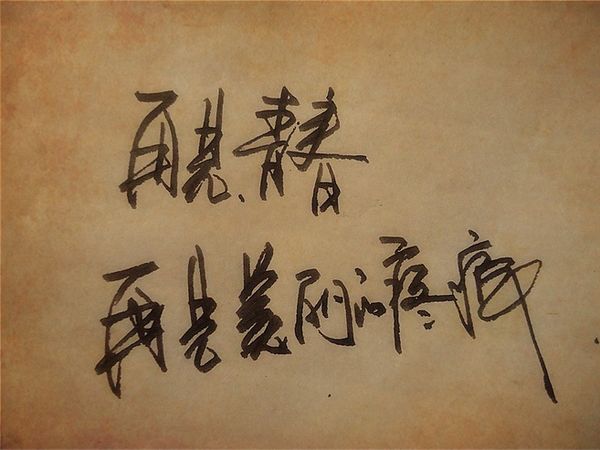 再見、青春
再見美丽的疼痛